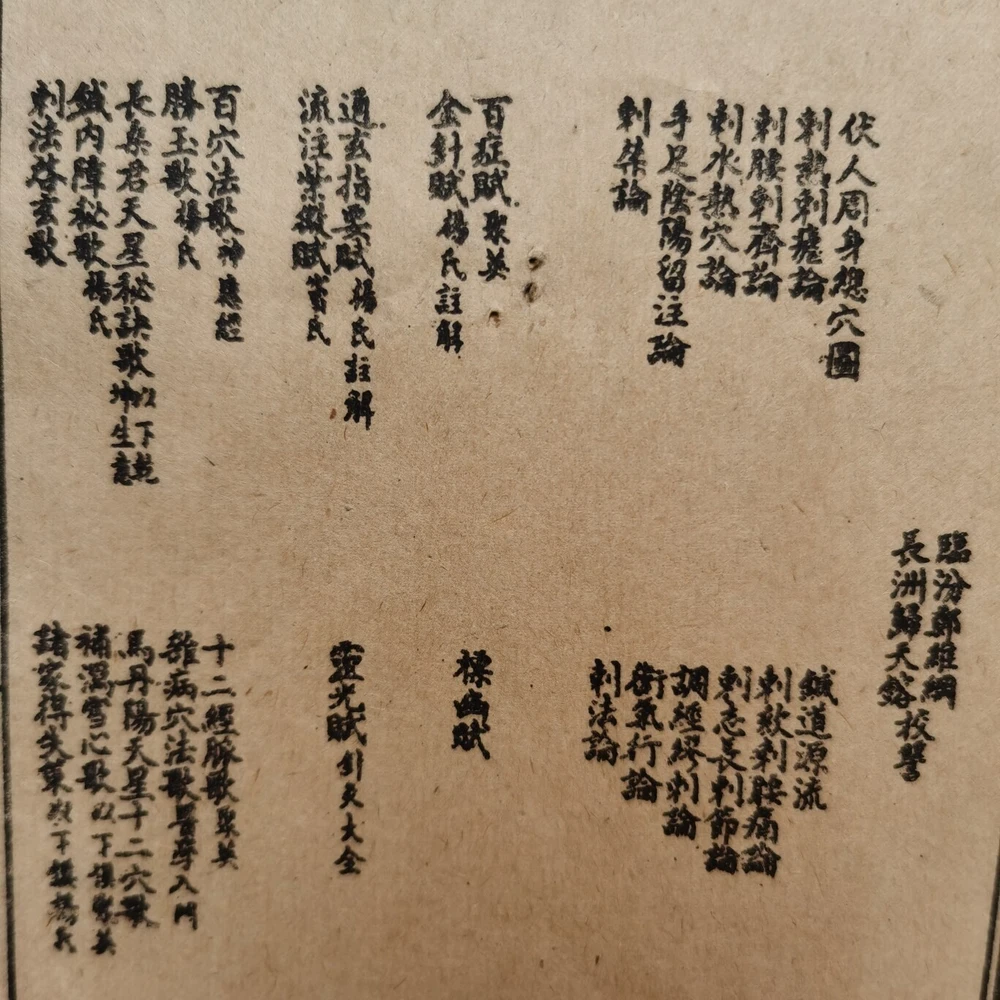 臨汾鄭維綱
長洲歸天鎔校讐
伏人周身總穴圖
鍼道源流
刺熱刺瘧論
刺欬刺腰痛論
刺腰刺齊論
刺志長刺節論
刺水熱穴論
調經繆刺論
手足陰陽留注論
衛氣行論
刺禁論
刺法論
百症賦 聚英
標幽賦
金針賦 楊氏註解
通玄指要賦 楊氏註解
靈光賦 針灸大全
流注紫微賦 竇氏
百穴法歌 神應經
十二經脈歌 聚英
勝玉歌 楊氏
雜病穴法歌 醫學入門
長桑君天星秘訣歌 以下乾坤生意
馬丹陽天星十二穴歌
鍼內障秘歌 楊氏
補瀉雪心歌 以下俱聚英
刺法啓玄歌
諸家得失策 以下俱楊氏